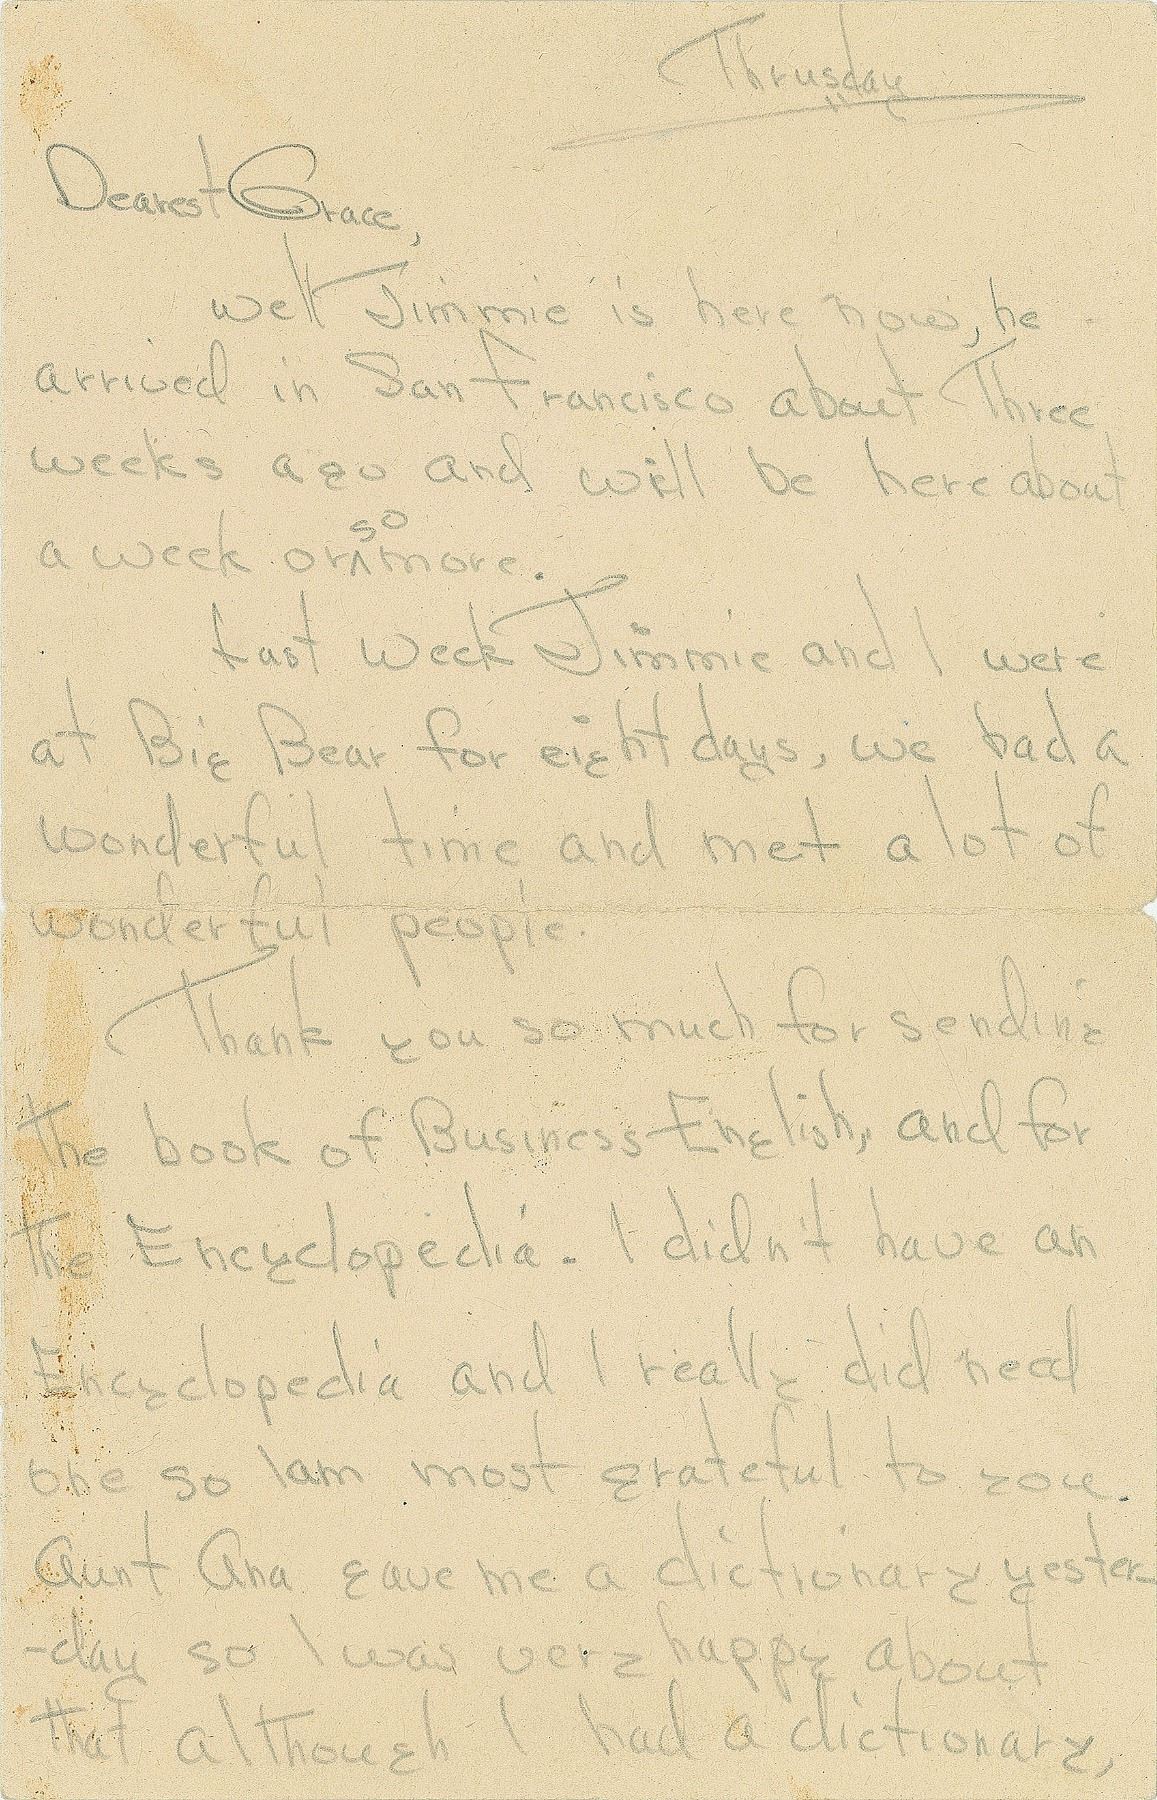 Thrusday
Dearest Grace,
well Jimmie is here now, he
arrived in San Francisco about Three
weeks ago and will be here about
a week or so more.
Last week Jimmie and I were
at Big Bear for eight days, we had a
wonderful time and met a lot of
wonderful people.
Thank you so much for sending
the book of Business English, and for
the Encyclopedia. I didn't have an
Encyclopedia and I really did need
one so I am most grateful to you.
Aunt Ana gave me a dictionary yester-
-day so I was very happy about
that although I had a dictionary,